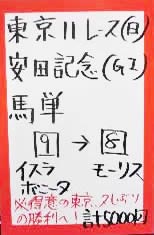 東京11レース(日)
安田記念(GI)
馬単
9→8
イスラ モーリス
ボニータ
必得意の東京、久しぶり
の勝利へ! 計5000円